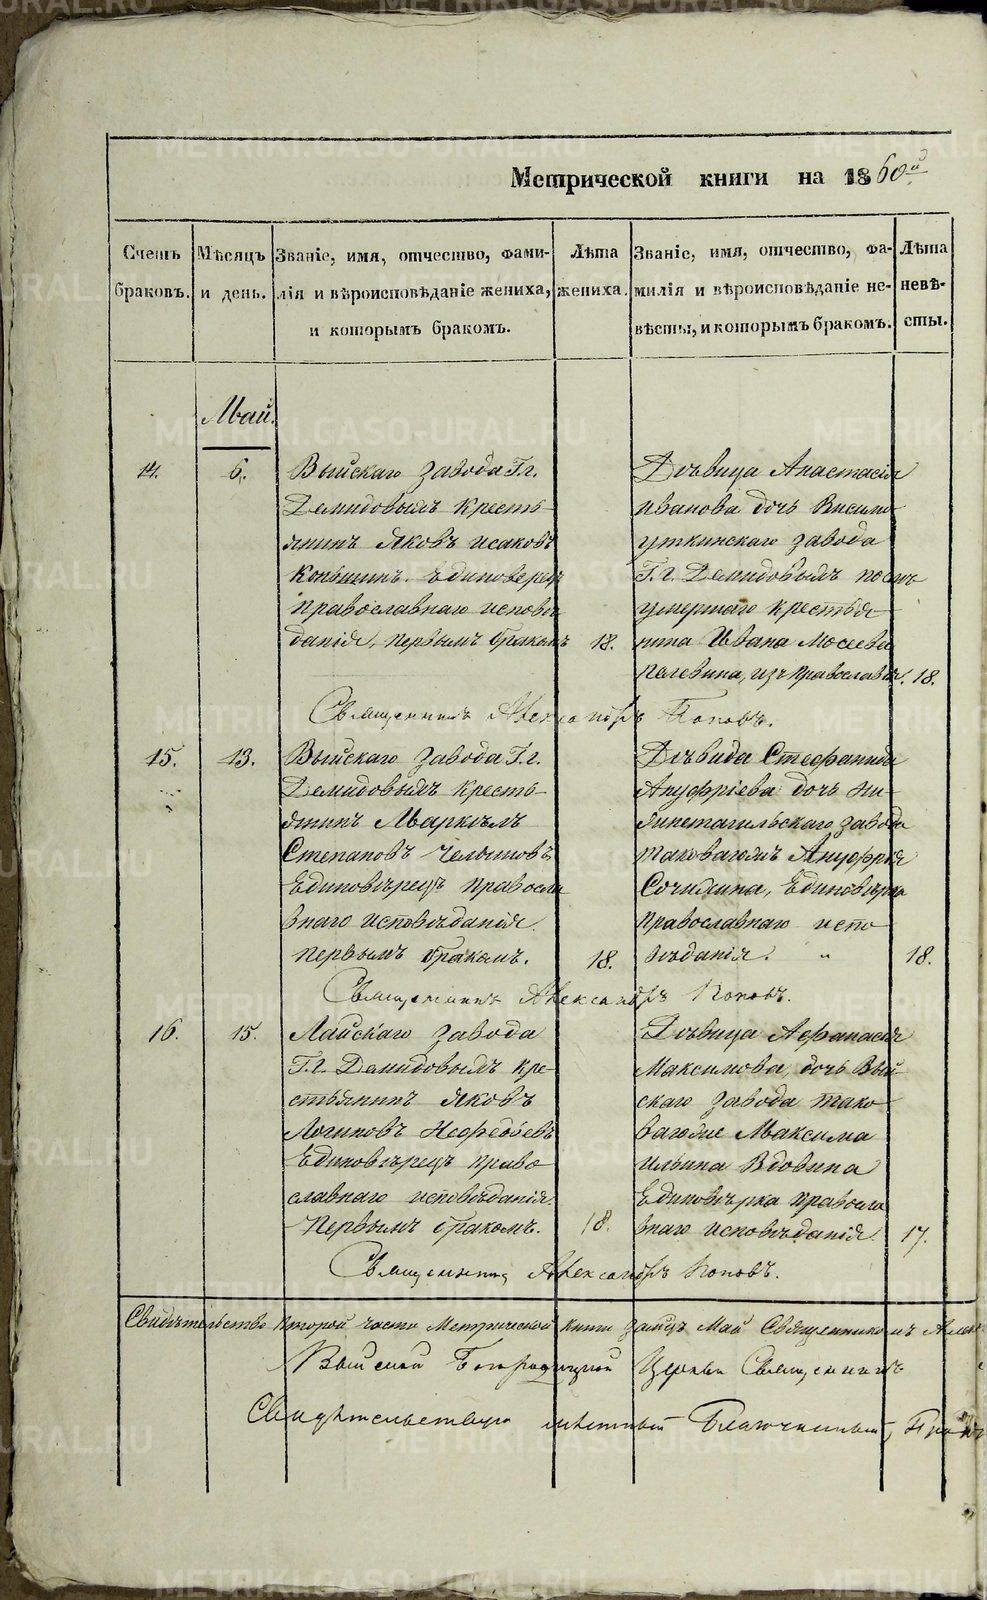 Метрической книги на 1860й
Счетъ браковъ.
Мѣсяцъ и день.
Званіе, имя, отчество, фами-
лія и вѣроисповѣданіе жениха,
и которымъ бракомъ.
Лѣта
жениха.
Званіе, имя, отчество, фа-
милія и вѣроисповѣданіе не-
вѣсты, и которымъ бракомъ.
Лѣта
невѣ-
сты.
Май.
14.
6.
Выйскаго завода Г.г.
Демидовыхъ кресть-
янинъ Яковъ Исаковъ
Единоверецъ
православнаго исповѣ
данія, первымъ бракомъ
18.
Дѣвица Анастасія
Иванова дочь Висимо
уткинскаго завода
Г.г. Демидовыхъ послѣ
умершаго крестья-
нина Ивана Мосеева
изъ православія.
18.
Священникъ Александръ Поповъ.
15.
13.
Выйскаго завода Г.г.
Демидовыхъ кресть-
янинъ Маркелъ
Степановъ
Единовѣрецъ правосла
внаго исповѣданія
первымъ бракомъ.
18.
Дѣвица Стефанида
Ануфріева дочь Ни-
жнетагильскаго завода
таковагожъ Ануфрія
Единовѣрка
православнаго испо
вѣданія. "
18.
Священникъ Александръ Поповъ.
16.
15.
Лайскаго завода
Г.г. Демидовыхъ кре-
стьянинъ Яковъ
Логиновъ Нефедьевъ
Единовѣрецъ право
славнаго исповѣданія.
Первымъ бракомъ.
18.
Дѣвица Афанасія
Максимова, дочь Вый-
скаго завода тако
вагоже Максима
Ильина Вдовина
Единовѣрка правосла
внаго исповѣданія.
17.
Священникъ Александръ Поповъ.
Свидѣтельство второй части Метрической книги за Май Священникомъ
Выйской Богородицкой Церкви Священникъ
Свидѣтельствую мѣстный Благочинный,
METRIKI.GASO-URAL.RU